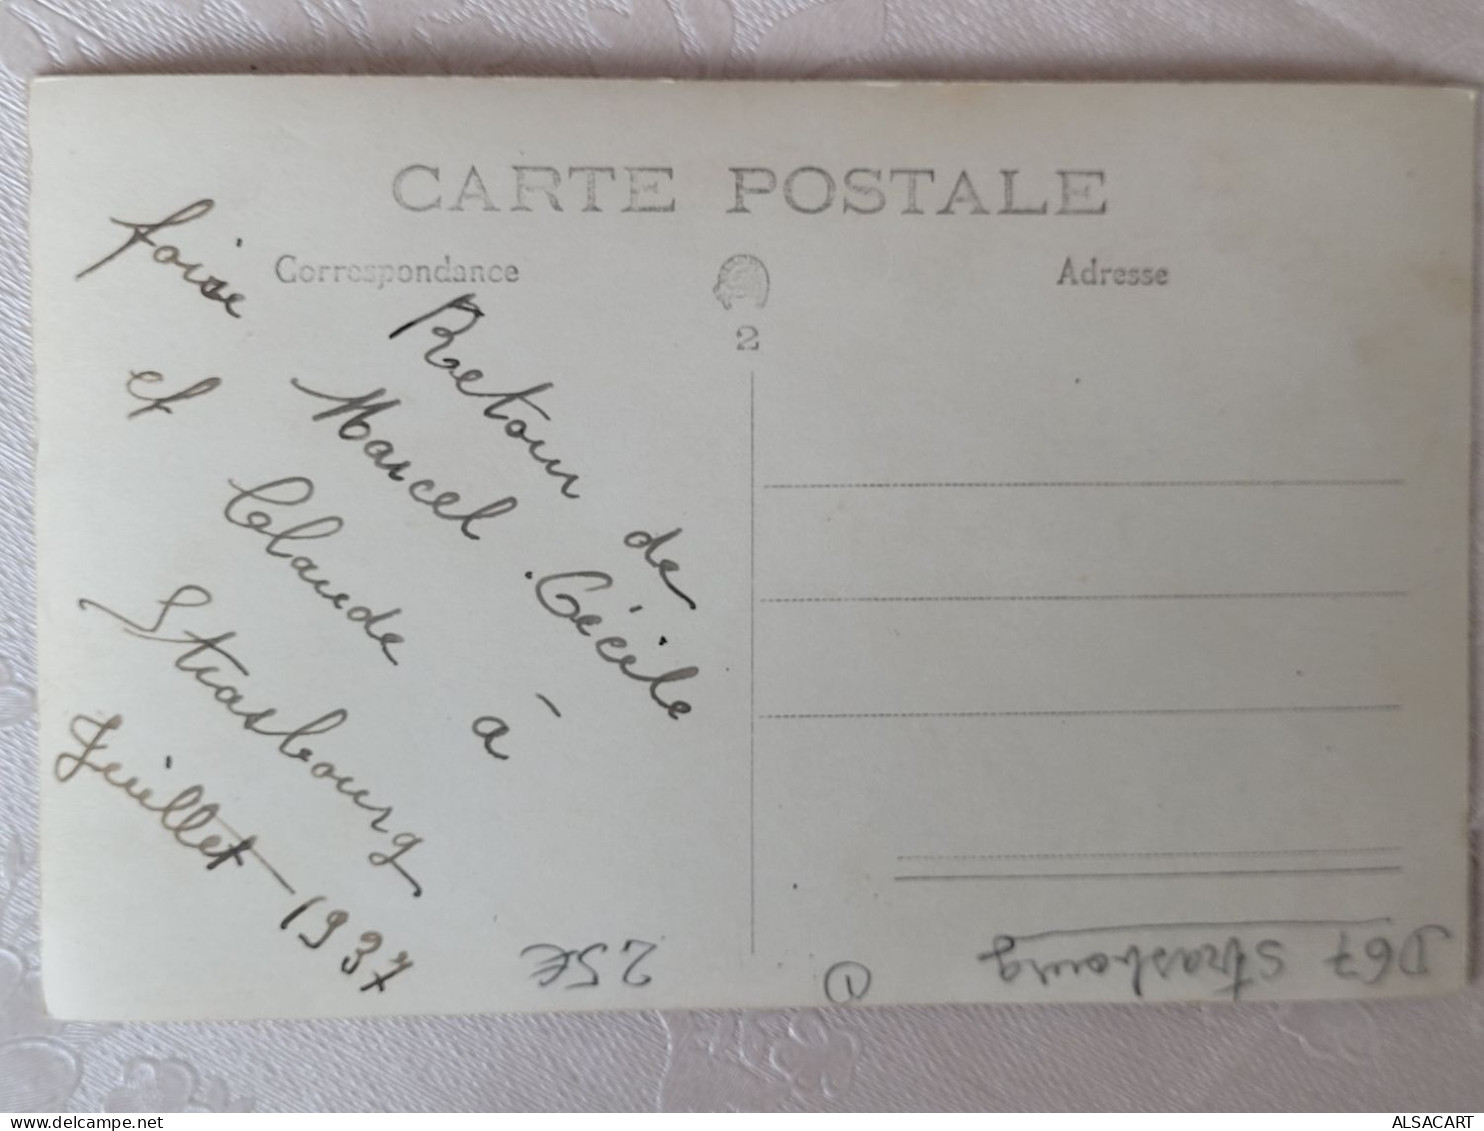 CARTE POSTALE
Correspondance
Adresse
2
Retour de
foire Marcel. Cécile
et Claude à
Strasbourg
Juillet 1937
25€
1
D67 Strasbourg
delcampe.net
ALSACART